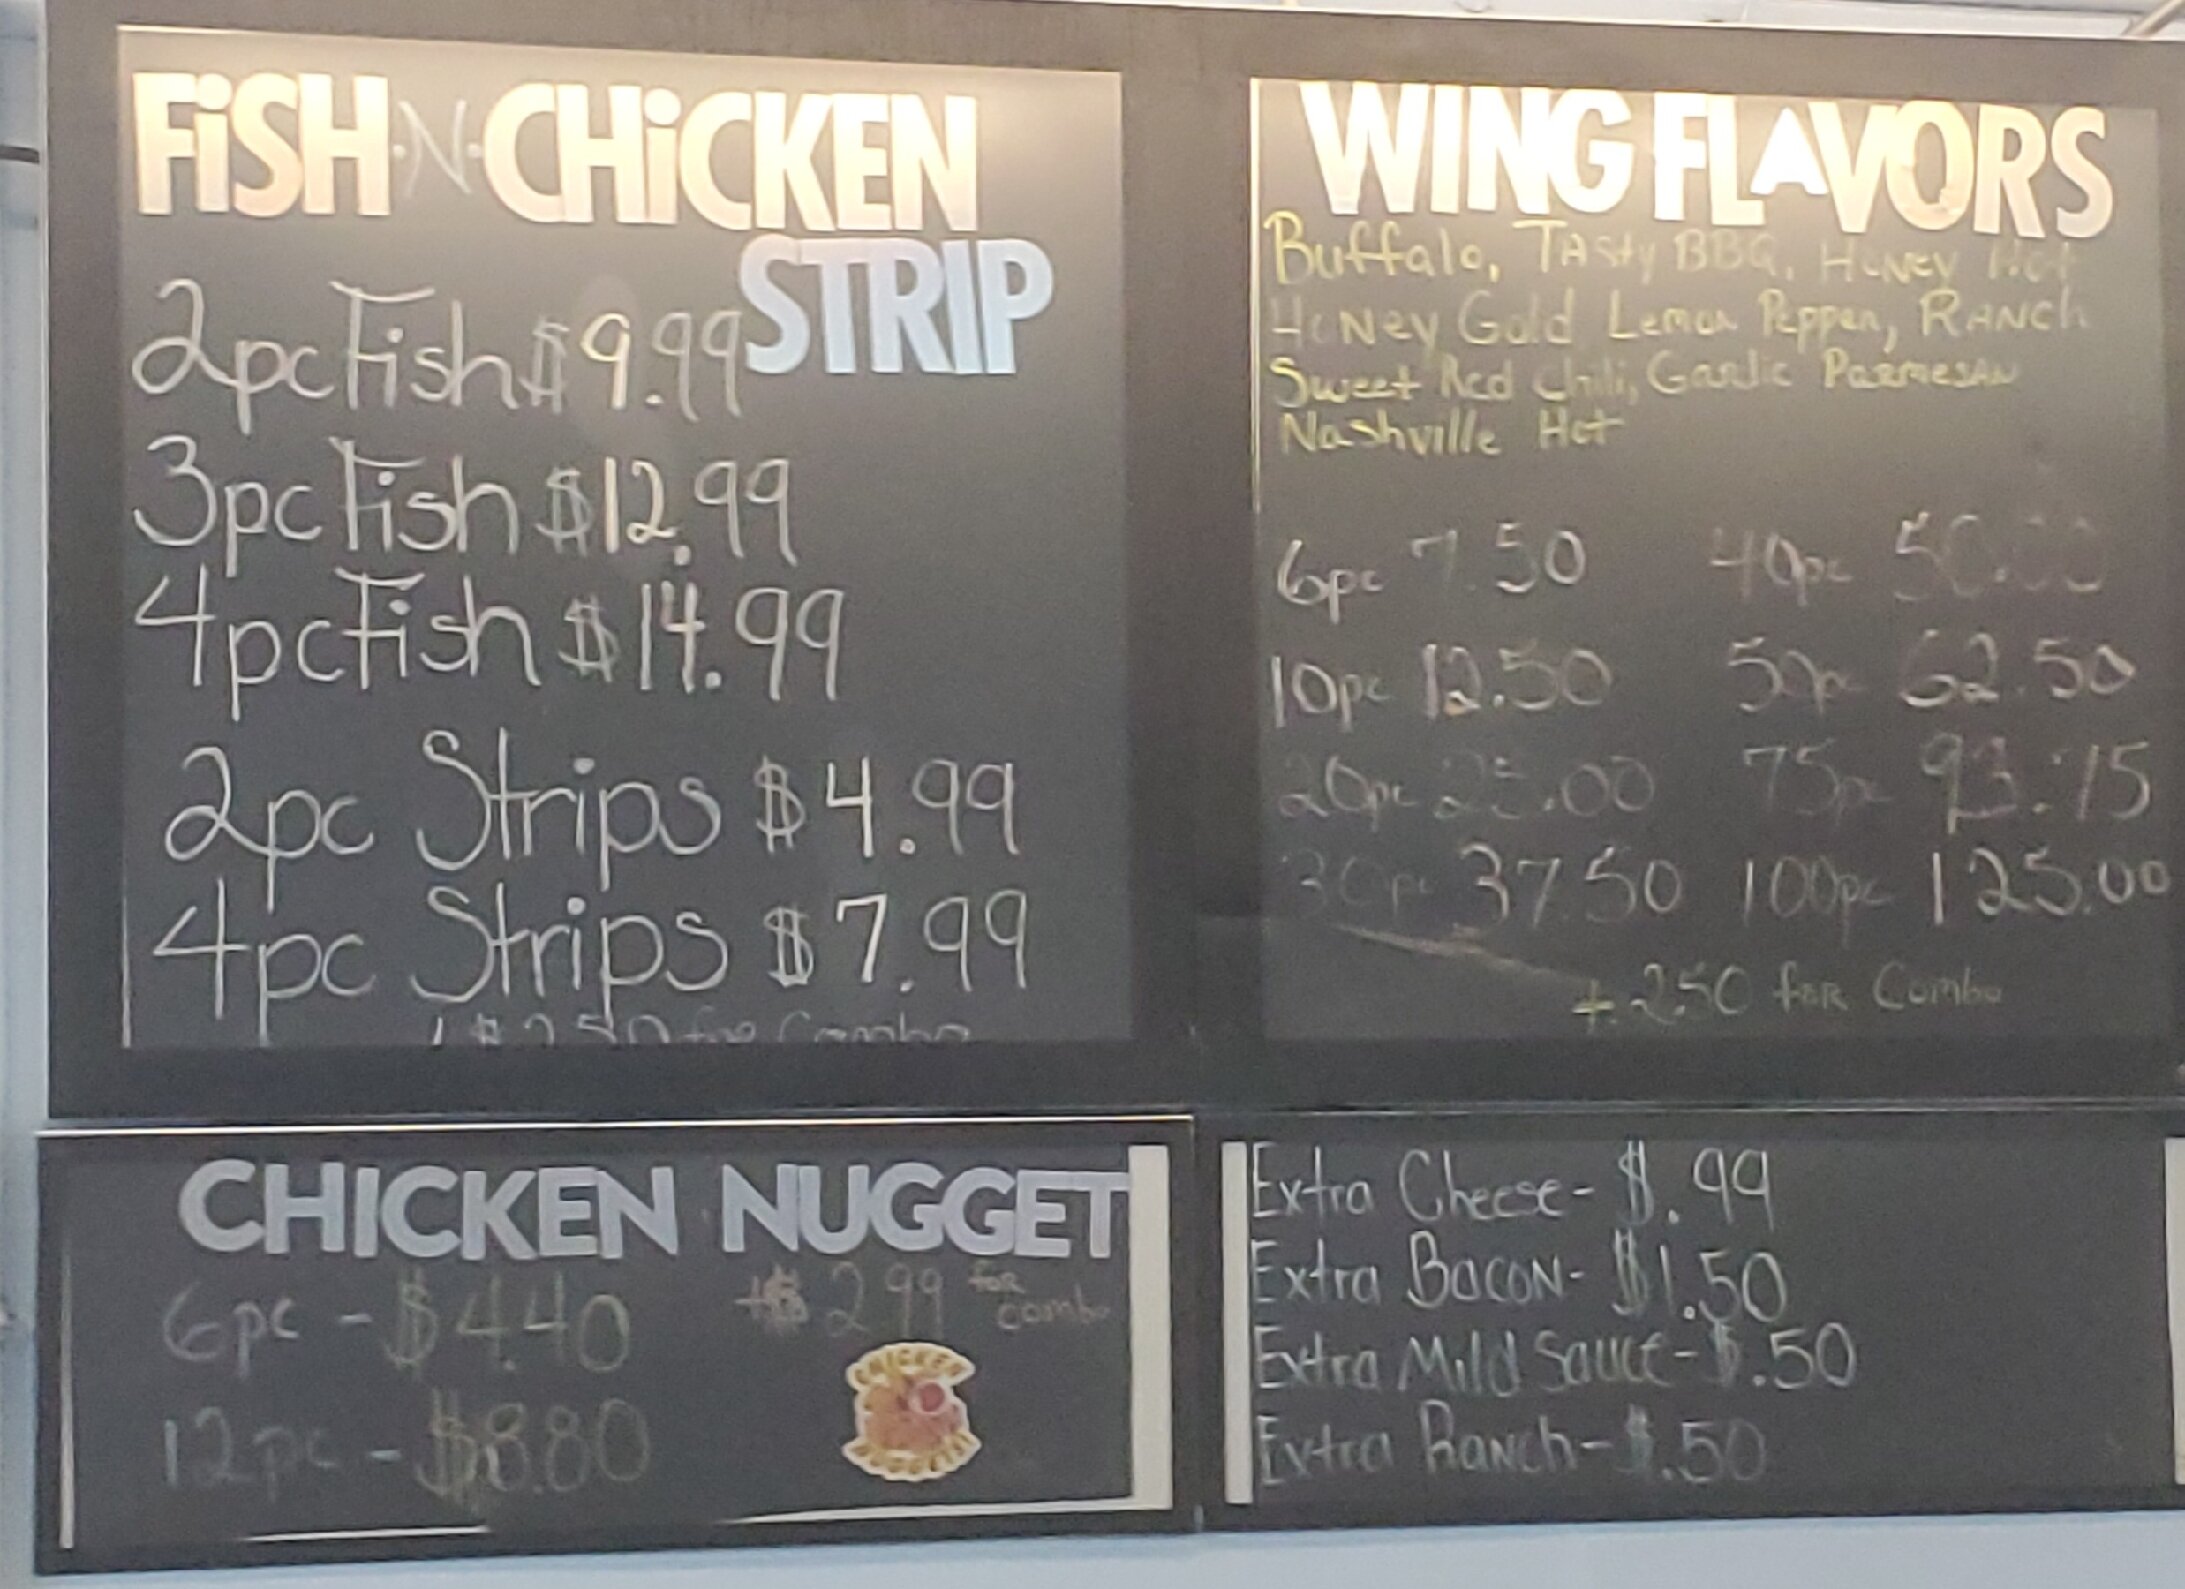 FiSH·N·CHiCKEN
STRIP
2pc Fish $9.99
3pc Fish $12.99
4pc Fish $14.99
2pc Strips $4.99
4pc Strips $7.99
+ $2.50 for Combo
WING FLAVORS
Buffalo, TAsty BBQ, HONEY Hot
HoNey Gold Lemon Pepper, RANCh
Sweet Red Chili, Garlic PARMESAN
Nashville Hot
6pc 7.50 40pc 50.00
10pc 12.50 50pc 62.50
20pc 25.00 75pc 93.75
30pc 37.50 100pc 125.00
+ 2.50 foR Combo
CHICKEN NUGGET
6pc - $4.40 +$2.99 foR combo
12pc - $8.80
CHICKEN
NUGGETS
Extra Cheese- $.99
Extra BacoN- $1.50
Extra Mild Sauce- $.50
Extra RaNch- $.50